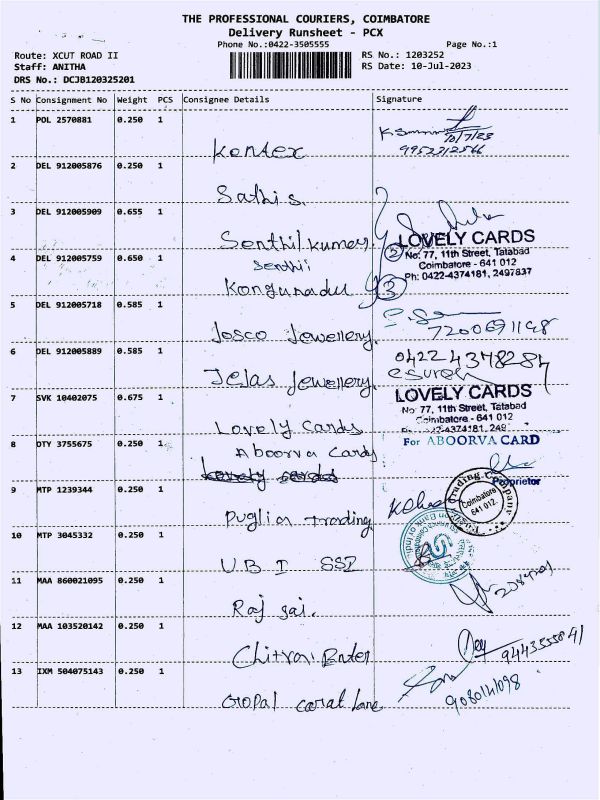 THE PROFESSIONAL COURIERS, COIMBATORE
Delivery Runsheet - PCX
Phone No.:0422-3505555
Page No.:1
Route: XCUT ROAD II
Staff: ANITHA
DRS No.: DCJB120325201
RS No.: 1203252
RS Date: 10-Jul-2023
S No Consignment No Weight PCS Consignee Details Signature
1 POL 2570881 0.250 1
Kontex
10/7/23
9952312566
2 DEL 912005876 0.250 1
Sathis.
3 DEL 912005909 0.655 1
Senthil kumar
LOVELY CARDS
No: 77, 11th Street, Tatabad
Coimbatore - 641 012
Ph: 0422-4374181, 2497837
2
4 DEL 912005759 0.650 1
Senthil
Kongunadu
3
5 DEL 912005718 0.585 1
Josco Jewellery.
7200691148
6 DEL 912005889 0.585 1
Jejas Jewellery.
0422 4378284
7 SVK 10402075 0.675 1
Lovely Cards
LOVELY CARDS
No: 77, 11th Street, Tatabad
Coimbatore - 641 012
8 DTY 3755675 0.250 1
Aboorva Cards
Lovely cards
For ABOORVA CARD
Proprietor
9 MTP 1239344 0.250 1
Puglia trading
Trading Company
Coimbatore
641 012.
10 MTP 3045332 0.250 1
U B I SSI
11 MAA 860021095 0.250 1
Raj sai.
12 MAA 103520142 0.250 1
Chitrai Enter
9443555841
13 IXM 504075143 0.250 1
Gopal carat lane
9080141098